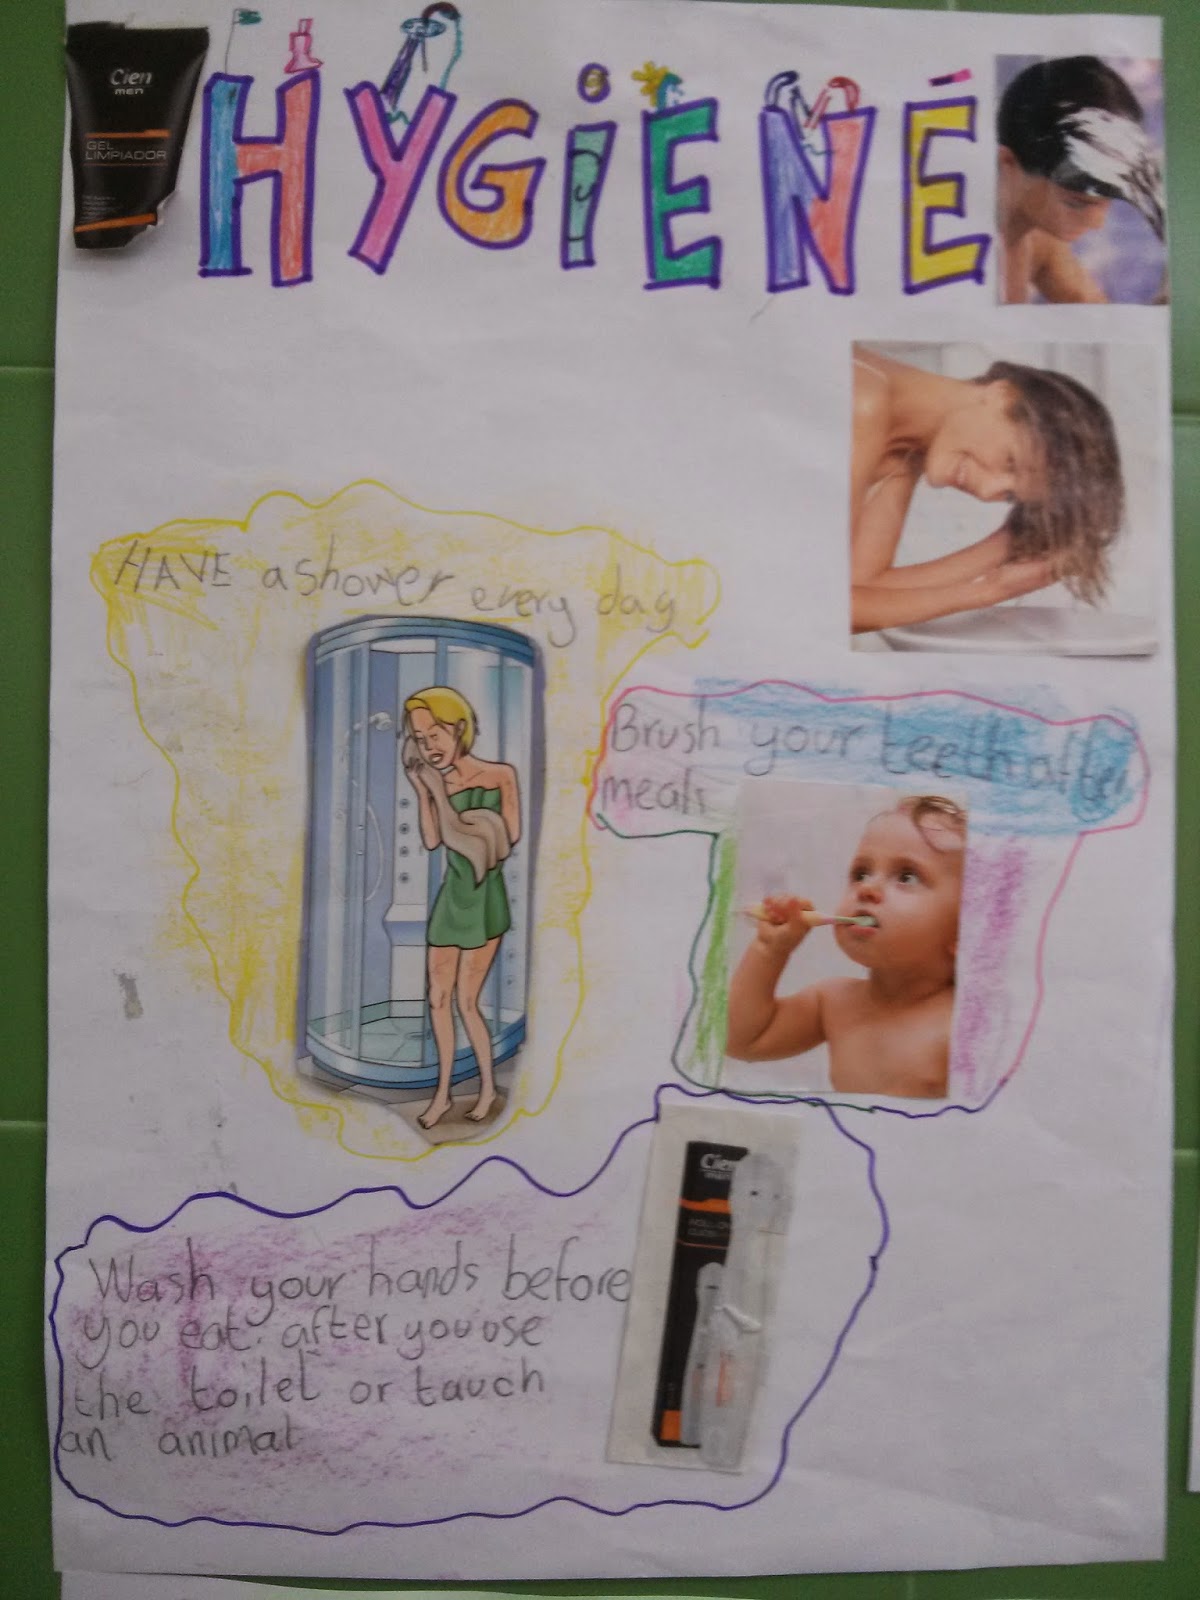 HYGIENÉ
Cien
men
GEL
LIMPIADOR
HAVE a shower every day
Brush your teeth after
meals
Wash your hands before
you eat. after you use
the toilet or tauch
an animal
Cien